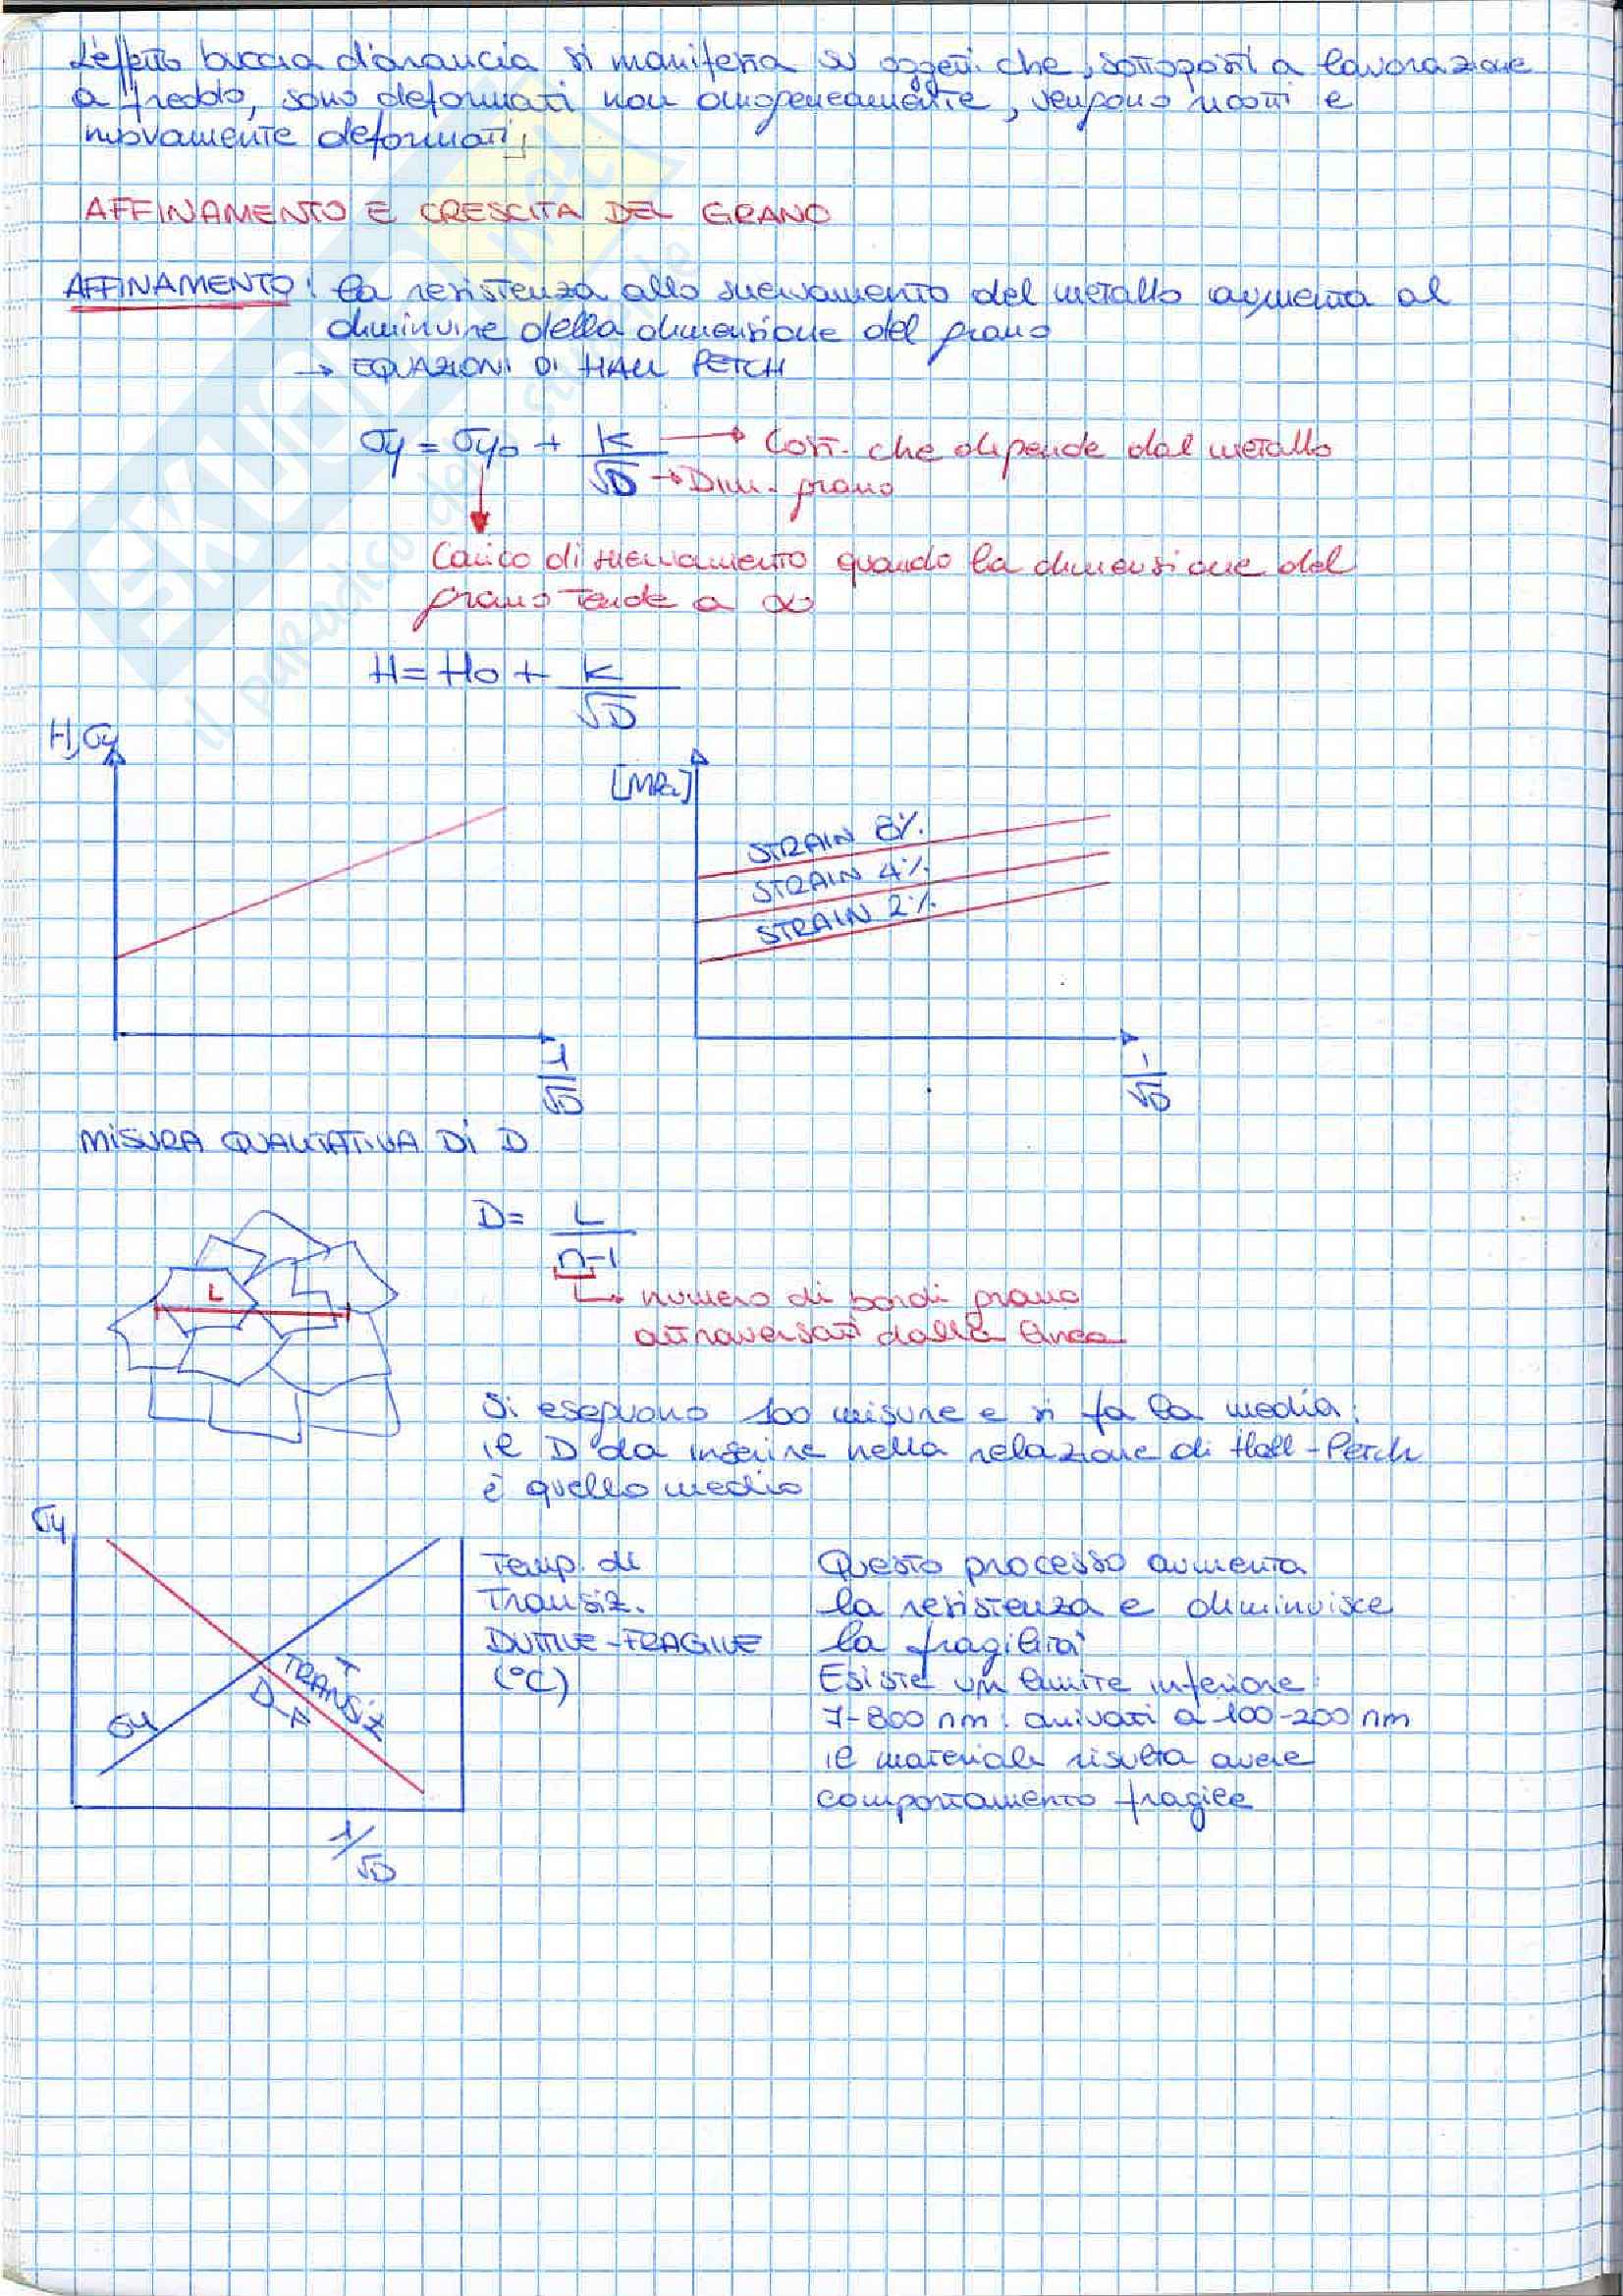 L'effetto buccia d'arancia si manifesta su oggetti che, sottoposti a lavorazione
a freddo, sono deformati non omogeneamente, vengono ricotti e
nuovamente deformati
AFFINAMENTO E CRESCITA DEL GRANO
AFFINAMENTO: la resistenza allo snervamento del metallo aumenta al
diminuire della dimensione del grano
→ EQUAZIONI DI HALL PETCH
σy = σy0 + K/√D → Cost. che dipende dal metallo
→ Dim. grano
Carico di snervamento quando la dimensione del
grano tende a ∞
H = H0 + K/√D
H, σy
[MPa]
STRAIN 8%
STRAIN 4%
STRAIN 2%
1/√D
1/√D
MISURA QUALITATIVA DI D
D = L/(n-1)
L
→ numero di bordi grano
attraversati dalla linea
Si eseguono 100 misure e si fa la media:
il D da inserire nella relazione di Hall-Petch
è quello medio
σy
Temp. di
Transiz.
DUTTILE-FRAGILE
(°C)
Questo processo aumenta
la resistenza e diminuisce
la fragilità
Esiste un limite inferiore:
7-800 nm: arrivati a 100-200 nm
il materiale risulta avere
comportamento fragile
σy
T
TRANSIZ
1/√D
EKUNO
.net
il paradiso dello studente